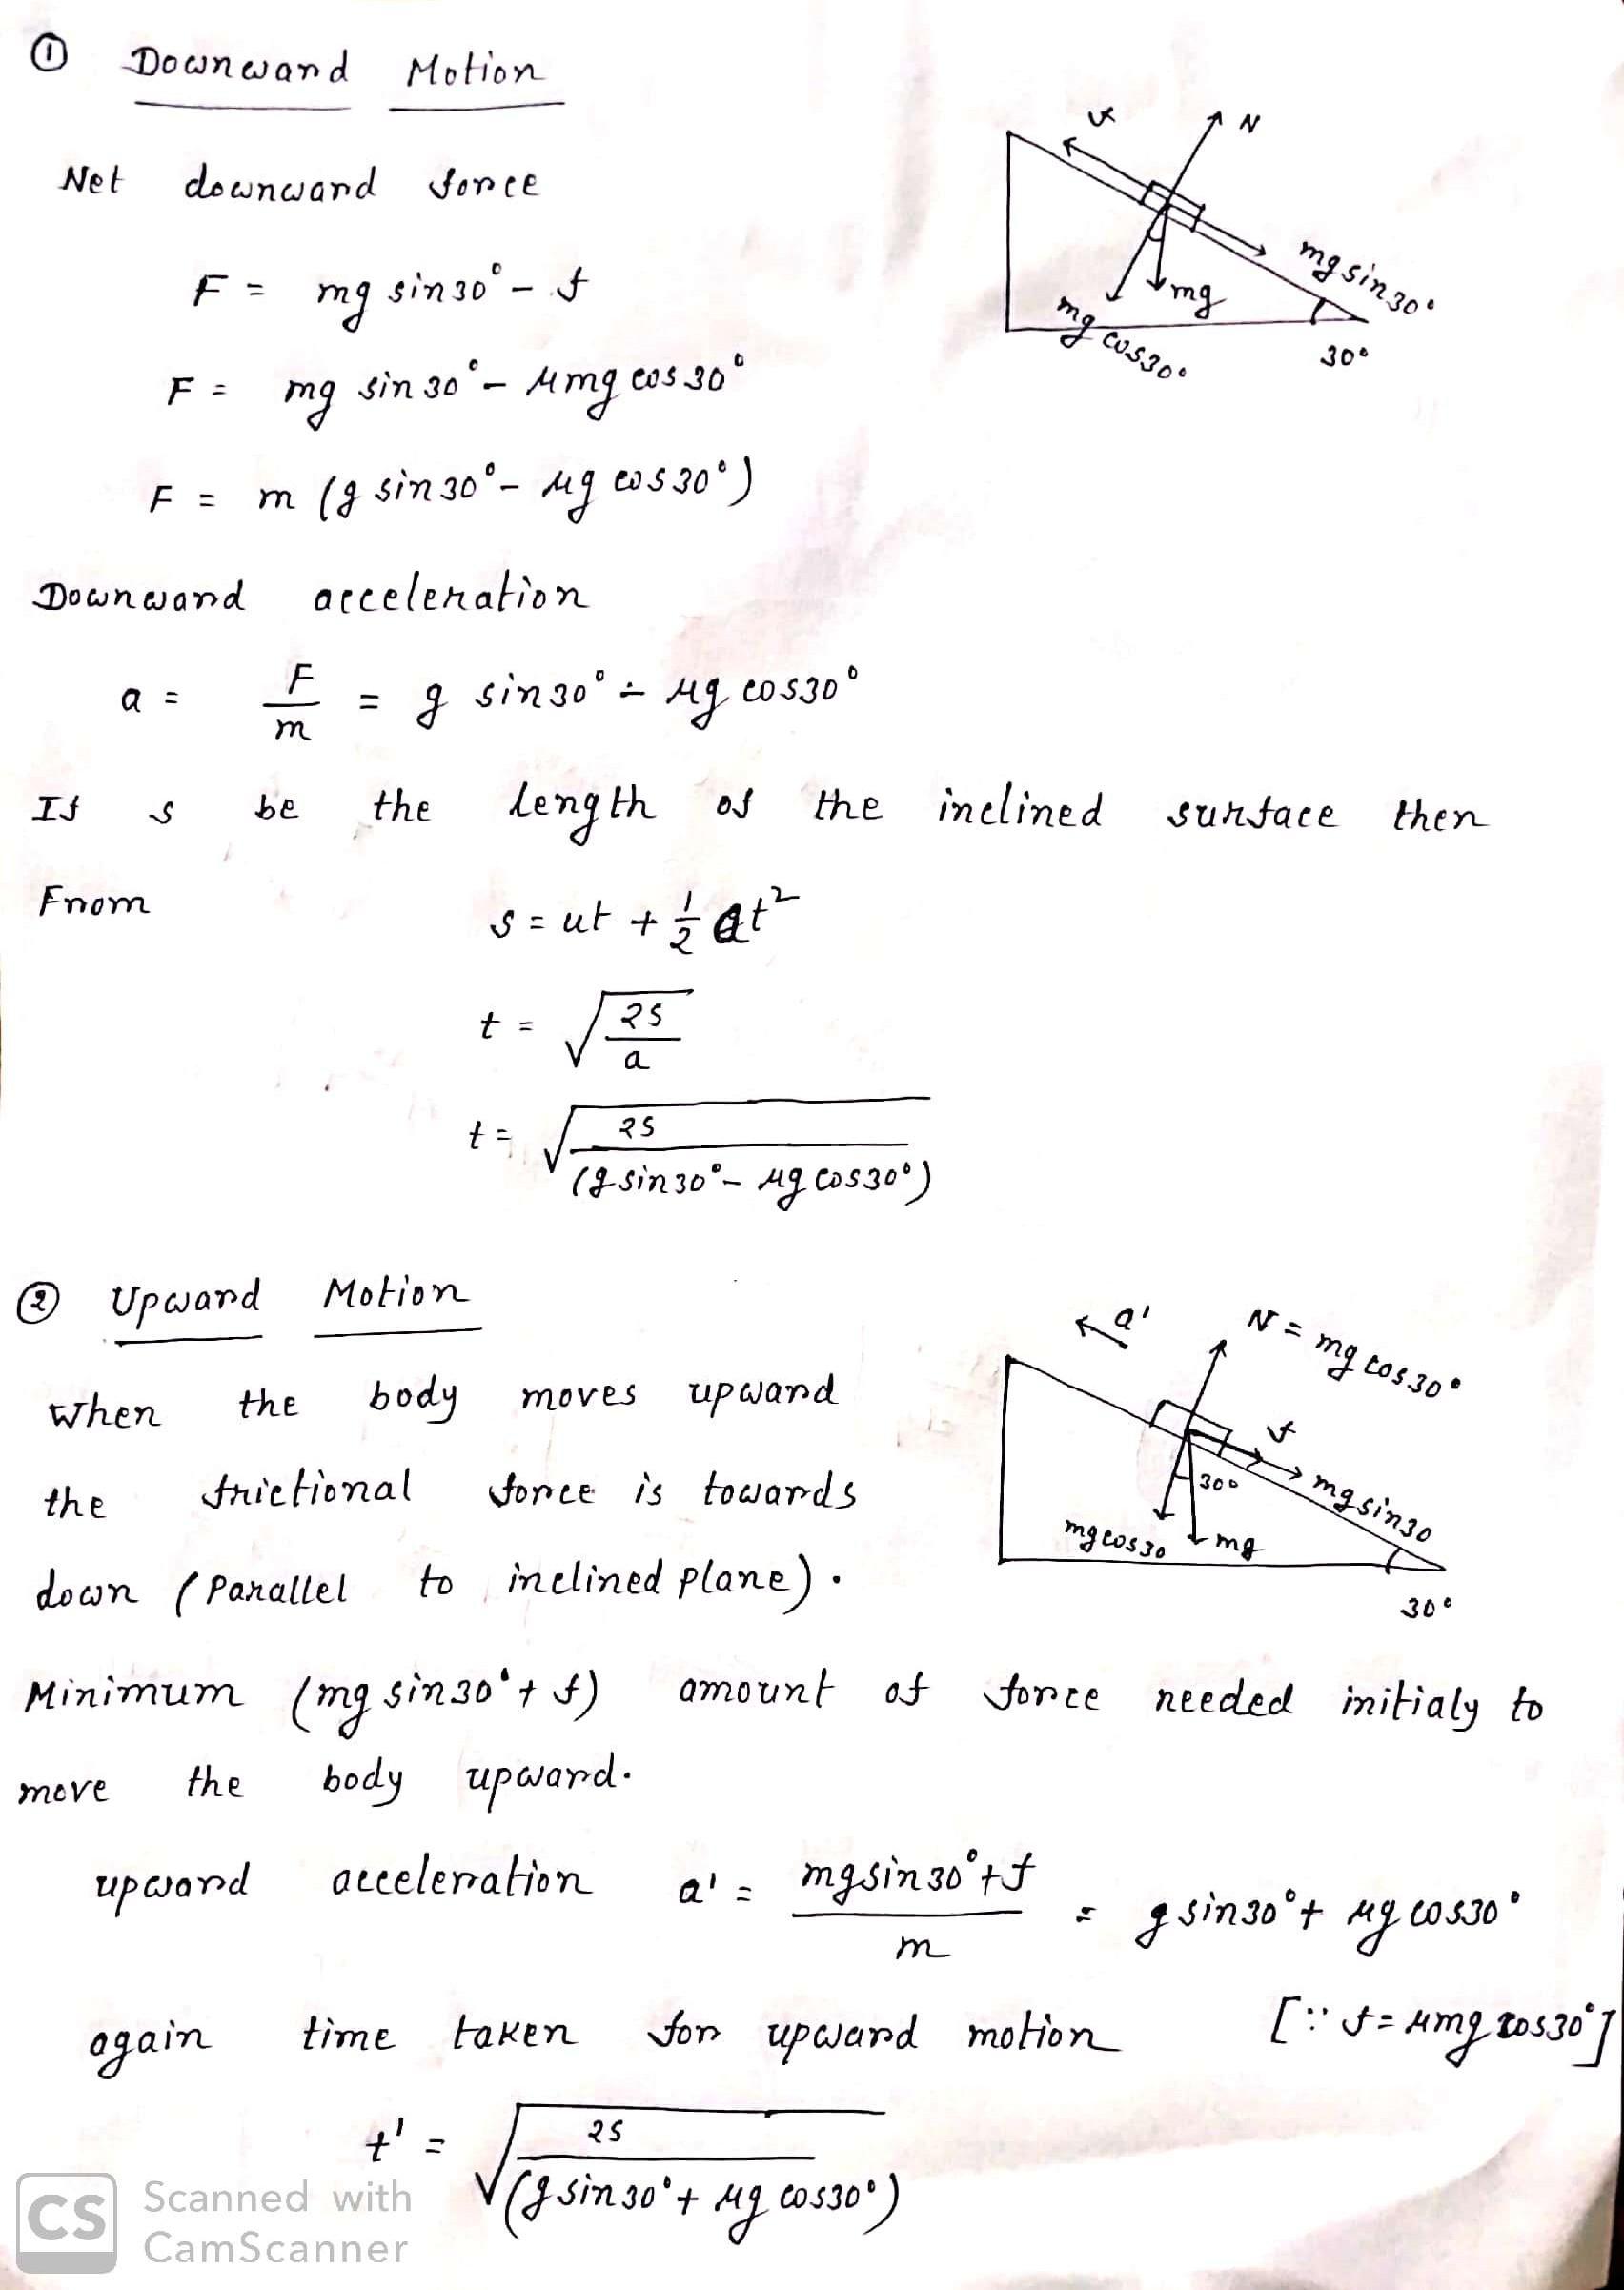 ① Downward Motion
Net downward force
F = mg sin30° - f
F = mg sin30° - μmg cos30°
F = m (g sin30° - μg cos30°)
f
N
mg sin30°
mg
mg cos30°
30°
Downward acceleration
a = F/m = g sin30° - μg cos30°
If s be the length of the inclined surface then
From s = ut + 1/2 at²
t = √(2s/a)
t = √(2s/(g sin30° - μg cos30°))
② Upward Motion
When the body moves upward
the frictional force is towards
down (Parallel to inclined plane).
a'
N = mg cos30°
f
30°
mg sin30
mg cos30
mg
30°
Minimum (mg sin30° + f) amount of force needed initialy to
move the body upward.
upward acceleration a' = (mg sin30° + f)/m = g sin30° + μg cos30°
again time taken for upward motion [∵ f = μmg cos30°]
t' = √(2s/(g sin30° + μg cos30°))
CS Scanned with
CamScanner